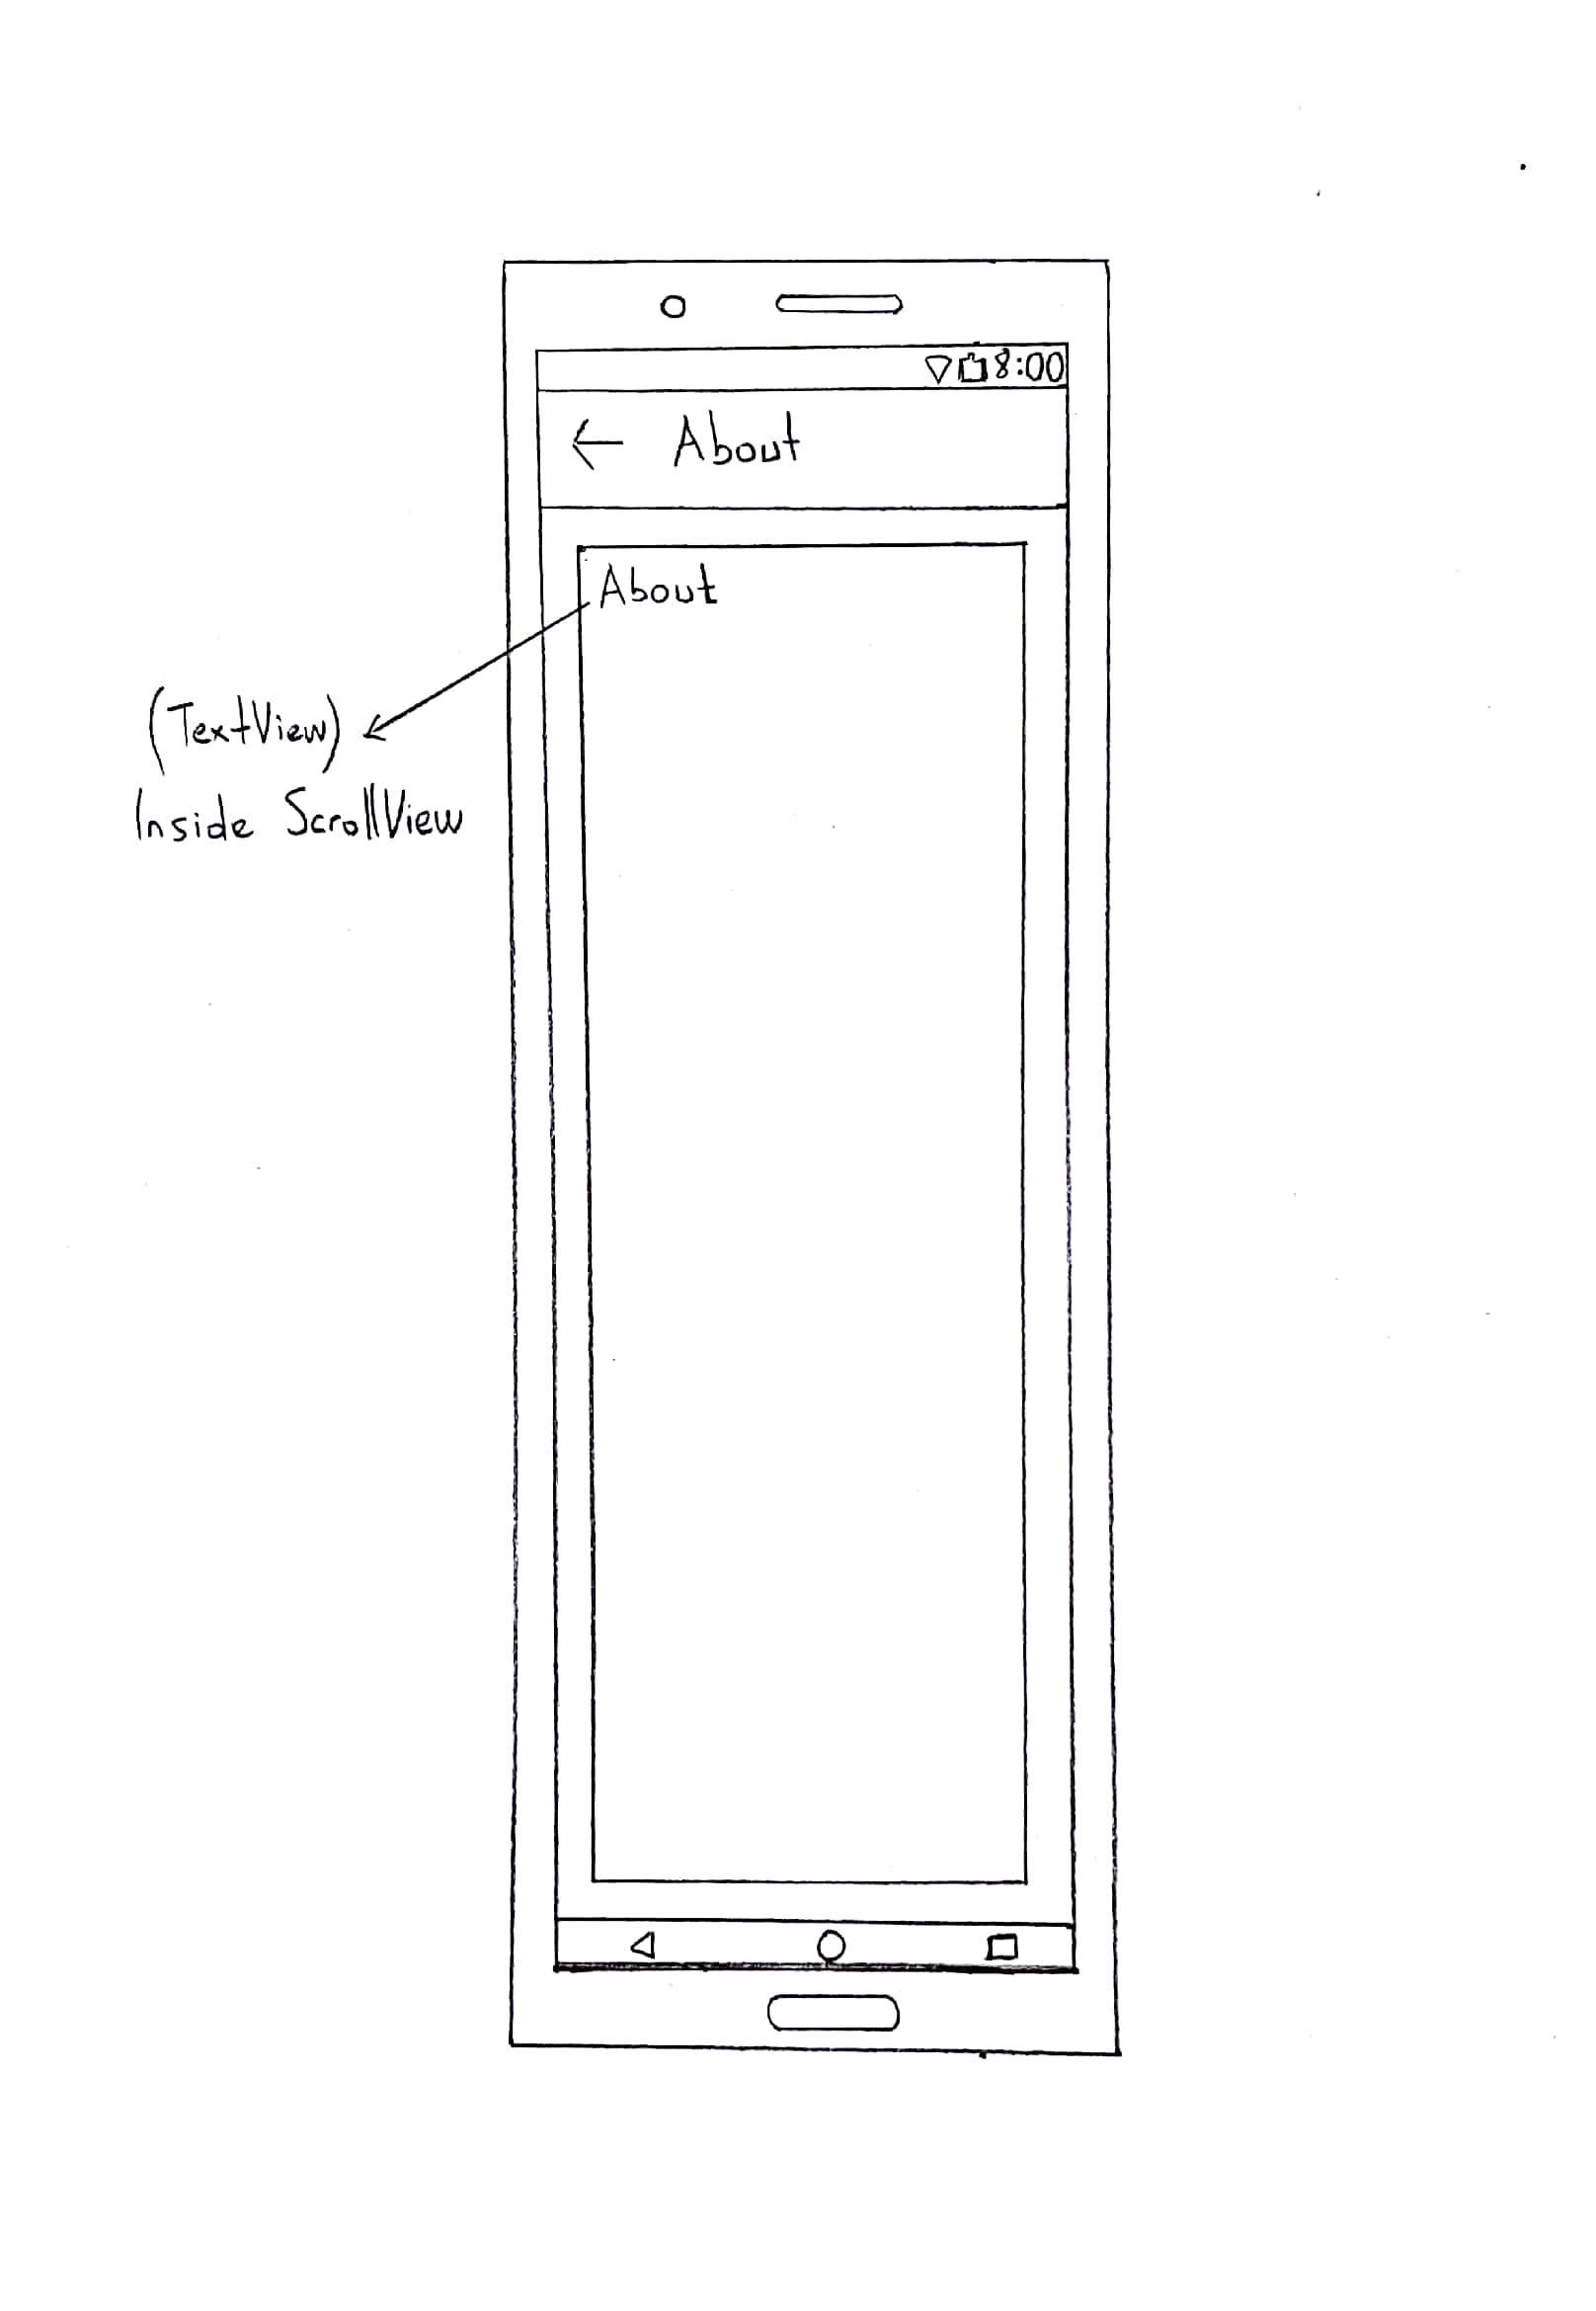 8:00
← About
About
(TextView)
Inside ScrollView